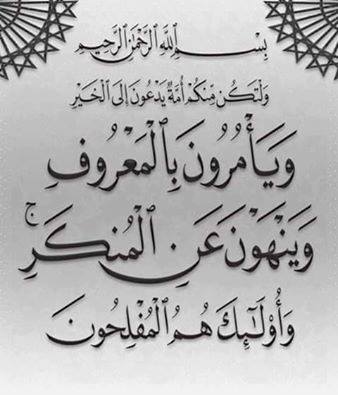 بِسْمِ اللَّهِ الرَّحْمَٰنِ الرَّحِيمِ
وَلْتَكُن مِّنكُمْ أُمَّةٌ يَدْعُونَ إِلَى الْخَيْرِ
وَيَأْمُرُونَ بِالْمَعْرُوفِ
وَيَنْهَوْنَ عَنِ الْمُنكَرِ ۚ
وَأُولَٰئِكَ هُمُ الْمُفْلِحُونَ